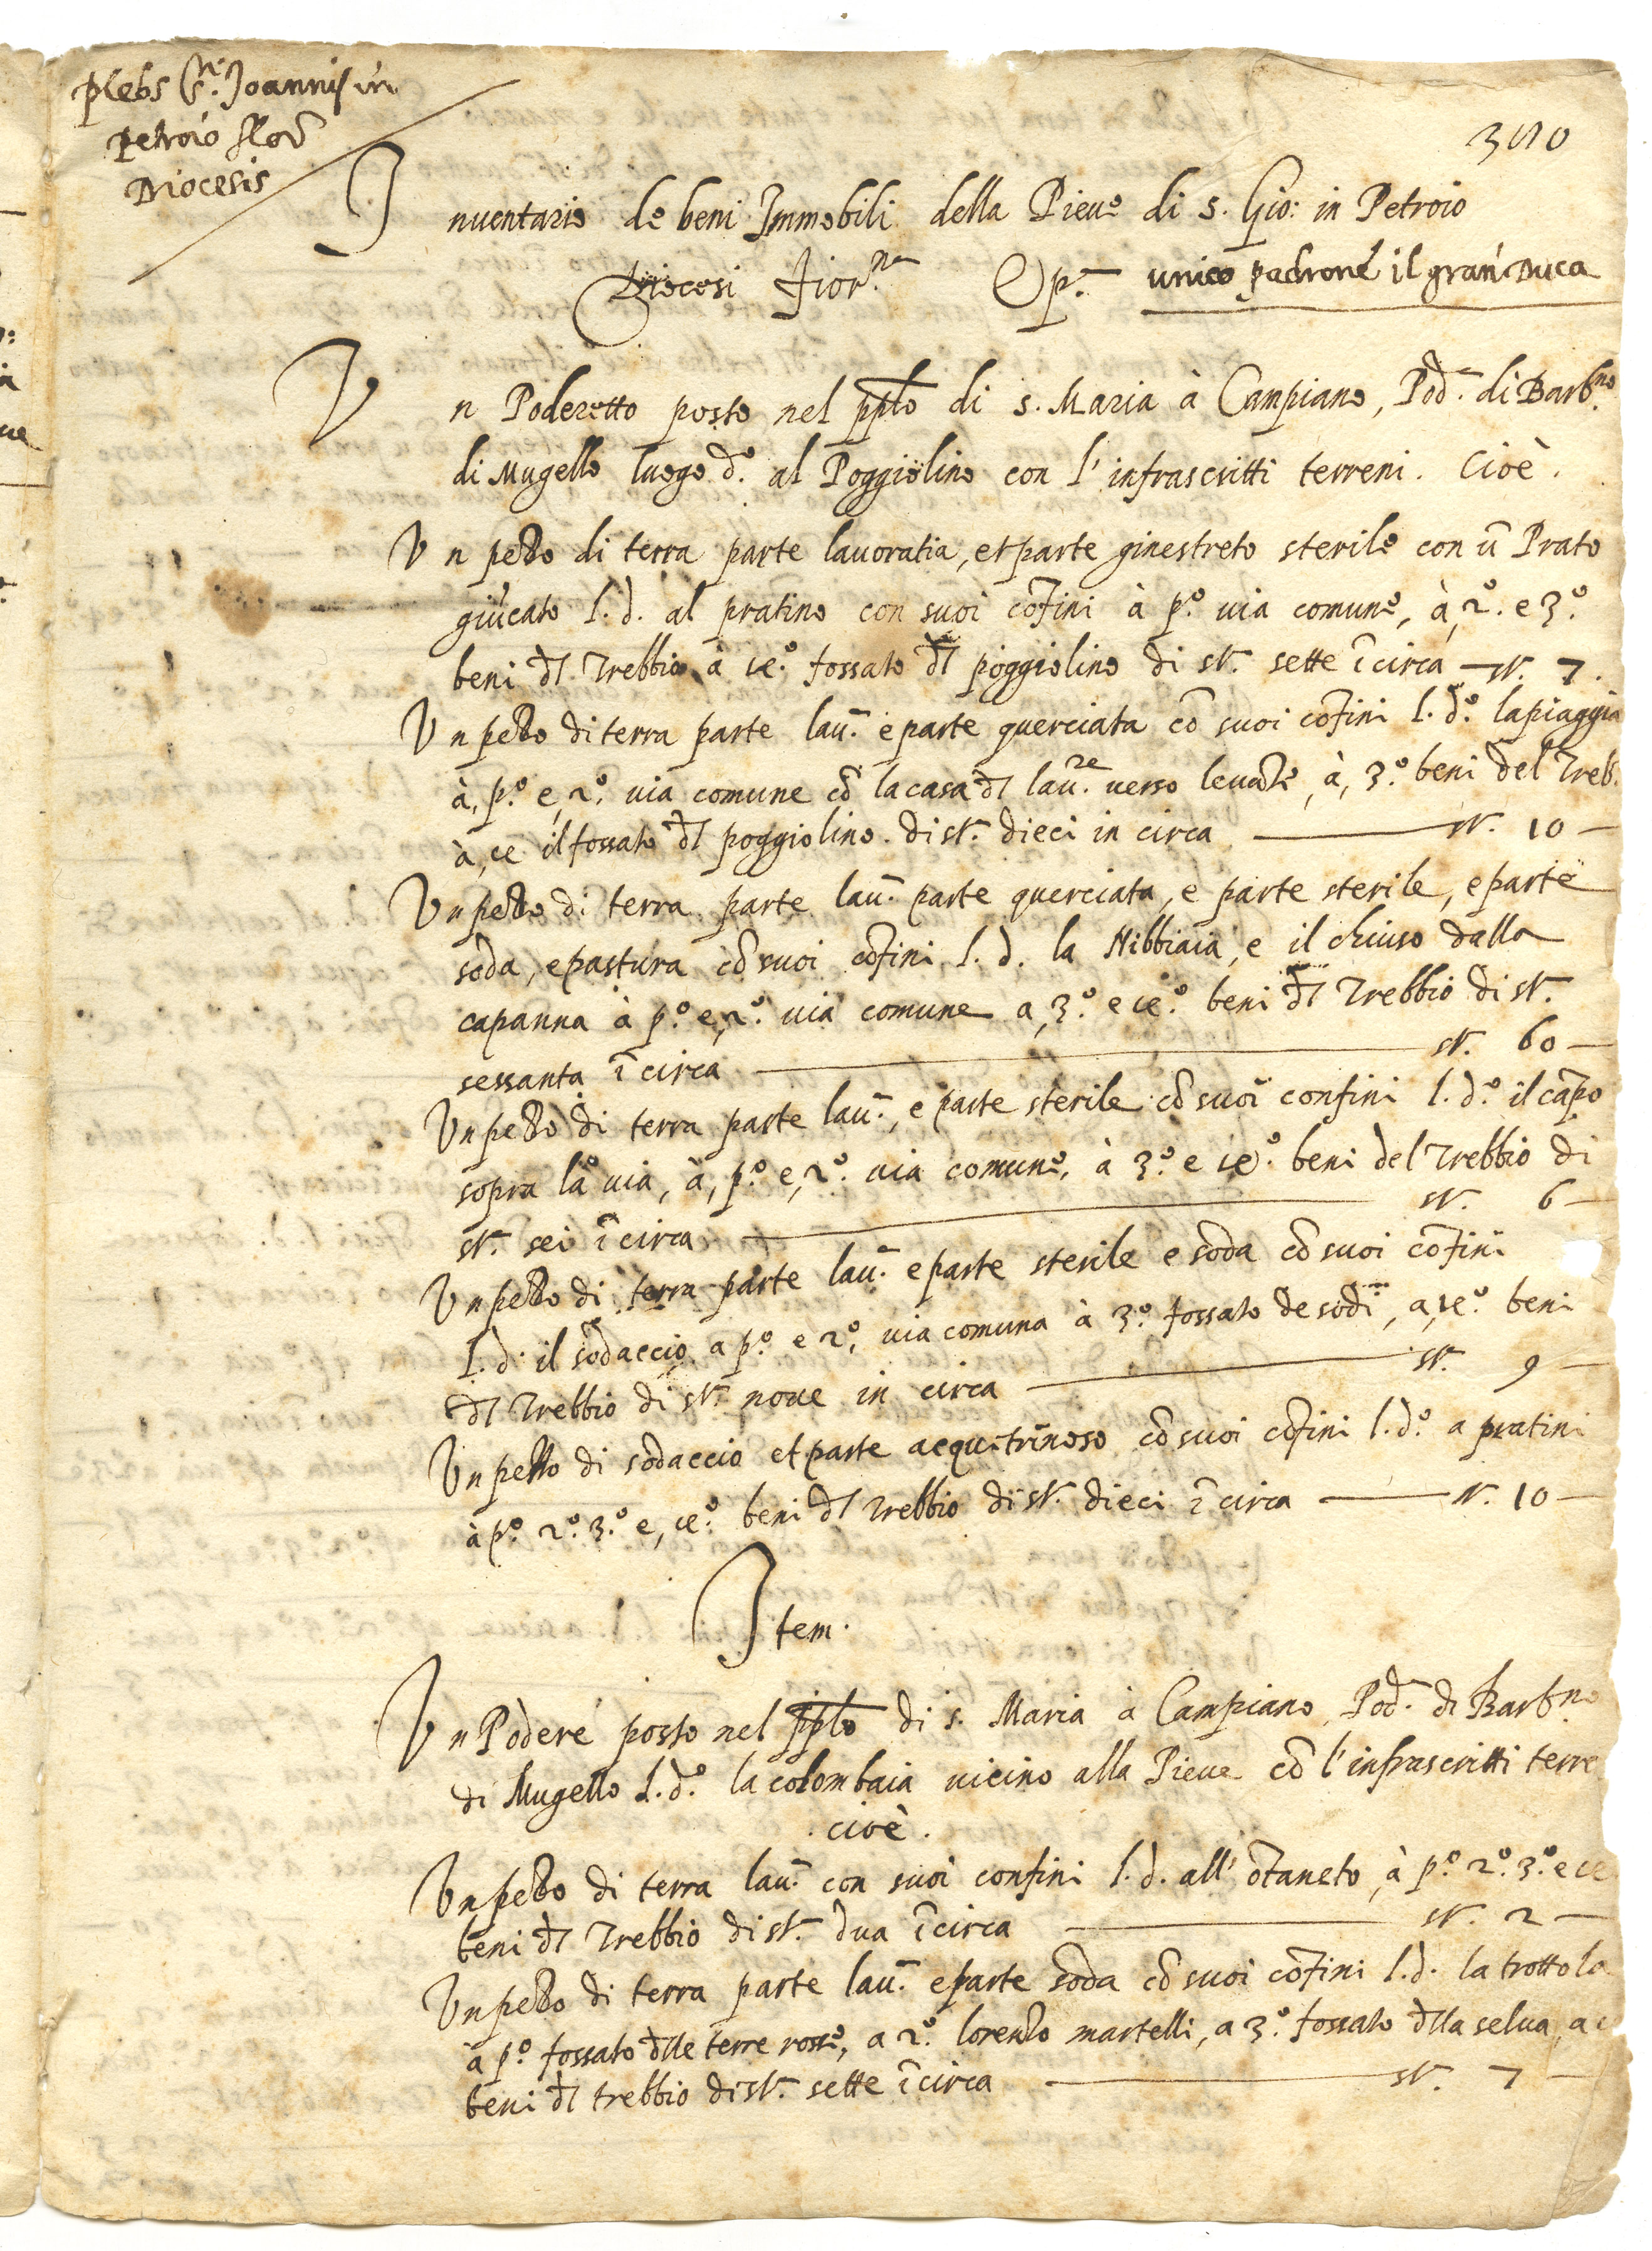 plebs S.ti Joannis in
petroio flor
Diocesis
Inuentario de beni Immobili della Pieue di s. Gio: in Petroio
Diocesi Fior.na unico padrone il gran Duca
Un Poderetto posto nel pplo di s. Maria à Campiano, Pod. di Barb.no
di Mugello luogo d.o al Poggiolino con l'infrascritti terreni. Cioè.
Un pezzo di terra parte lauoratia, et parte ginestreto sterile con ũ Prato
giũcato l. d. al pratino con suoi cõfini à p.o uia comune, à, 2.o e 3.o
beni dl Trebbio à 4.o fossato dl poggiolino di st. sette ĩ circa — st. 7.
Un pezzo di terra parte lau. e parte querciata cõ suoi cõfini l. d.o la piaggia
à, p.o e, 2.o uia comune cõ la casa dl lau.re uerso leuãte, à, 3.o beni del Treb.
à, 4 il fossato dl poggiolino. di st. dieci in circa — st. 10 —
Un pezzo di terra parte lau. parte querciata, e parte sterile, e parte
soda, e pastura cõ suoi cõfini l. d. la Nibbiaia, e il chiuso dalla
capanna à p.o e, 2.o uia comune a, 3.o e 4.o beni dl Trebbio di st.
sessanta ĩ circa — st. 60 —
Un pezzo di terra parte lau., e parte sterile cõ suoi confini l. d.o il cãpo
sopra la uia, à, p.o e, 2.o uia comune, à 3.o e 4.o beni del Trebbio di
st. sei ĩ circa — st. 6 —
Un pezzo di terra parte lau. e parte sterile e soda cõ suoi cõfini
l. d. il sodaccio a p.o e 2.o, uia comuna à 3.o fossato de sodi, a, 4.o beni
dl Trebbio di st. noue in circa — st. 9 —
Un pezzo di sodaccio et parte acquitrinoso cõ suoi cõfini l. d.o a pratini
à p.o 2.o 3.o e, 4.o beni dl Trebbio di st. dieci ĩ circa — st. 10 —
Item.
Un Podere posto nel pplo di s. Maria à Campiano, Pod. di Barb.no
di Mugello l. d.o la colombaia uicino alla Pieue cõ l'infrascritti terre
cioè.
Un pezzo di terra lau. con suoi confini l. d. all' õtaneto, à p.o 2.o 3.o e 4
beni dl Trebbio di st. dua ĩ circa — st. 2 —
Un pezzo di terra parte lau. e parte soda cõ suoi cõfini l. d. la trottola
à p.o fossato dlle terre rosse, a 2.o lorenzo martelli, a 3.o fossato dlla selua, a
beni dl trebbio di st. sette ĩ circa — st. 7 —